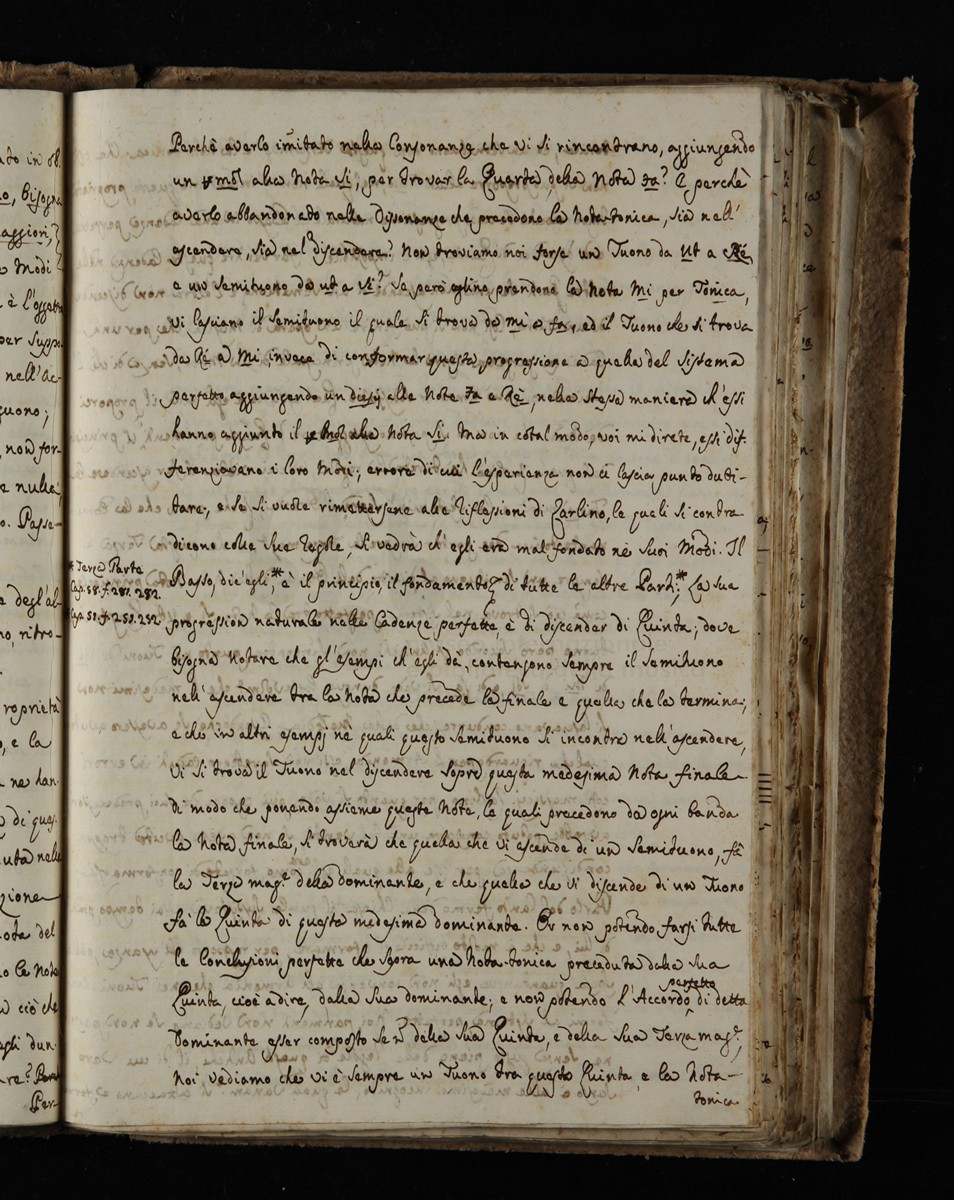 Perchè averlo imitato nelle Consonanze che vi si rincontrano, aggiungendo
un b mol alla Nota Si, per trovar la Quarta della Nota Fa? E perchè
averlo abbandonato nelle Dissonanze che precedono la Nota-tonica, sia nell'
ascendere, sia nel discendere? Non troviamo noi forse un Tuono da Ut a Rè,
e un Semituono da ut a Si? Se però eglino prendono la Nota Mi per Tonica,
vi lasciano il Semituono il quale si trova da mi a fa, ed il Tuono che si trova
da Rè a Mi, invece di conformar questa progressione a quella del Sistema
perfetto aggiungendo un diesis alle Note Fa e Rè, nella stessa maniera ch'essi
hanno aggiunto il b mol alla Nota Si. Ma in cotal modo, voi mi direte, essi dif-
ferenziavano i loro Modi; errore di cui l'esperienza non ci lascia punto dubi-
tare, e se si vuole rimettersene alle Riflessioni di Zarlino, le quali si contra
dicono colle sue regole, si vedrà ch'egli era mal fondato ne' suoi Modi. Il
* Terza Parte
Cap. 58. f. 281. 282.
Basso, dic'egli,* è il principio, il fondamento di tutte le altre Parti;* La sua
Cap. 51. f. 251. 252
progression naturale nelle Cadenze perfette, è di discender di Quinta; dove
bisogna notare che gl'esempi ch'egli dà, contengono sempre il Semituono
nell'ascendere tra la Nota che precede la finale e quella che la termina;
e che in altri esempj nè quali questo Semituono si incontra nell'ascendere,
vi si trova il Tuono nel discendere sopra questa medesima Nota finale
di modo che ponendo assieme queste Note, le quali precedono da ogni banda
la Nota finale, si troverà che quella che vi ascende di un Semituono, fà
la Terza mag.e della dominante, e che quella che vi discende di un Tuono
fà la Quinta di questa medesima dominante. Or non potendo farsi tutte
le Conclusioni perfette che sopra una Nota-tonica preceduta dalla sua
Quinta, cioè a dire, dalla sua dominante; e non potendo l'Accordo perfetto di detta
Dominante esser composto se non della sua Quinta, e della sua Terza mag.e,
noi vediamo che vi è sempre un Tuono tra questa Quinta e la Nota-
tonica